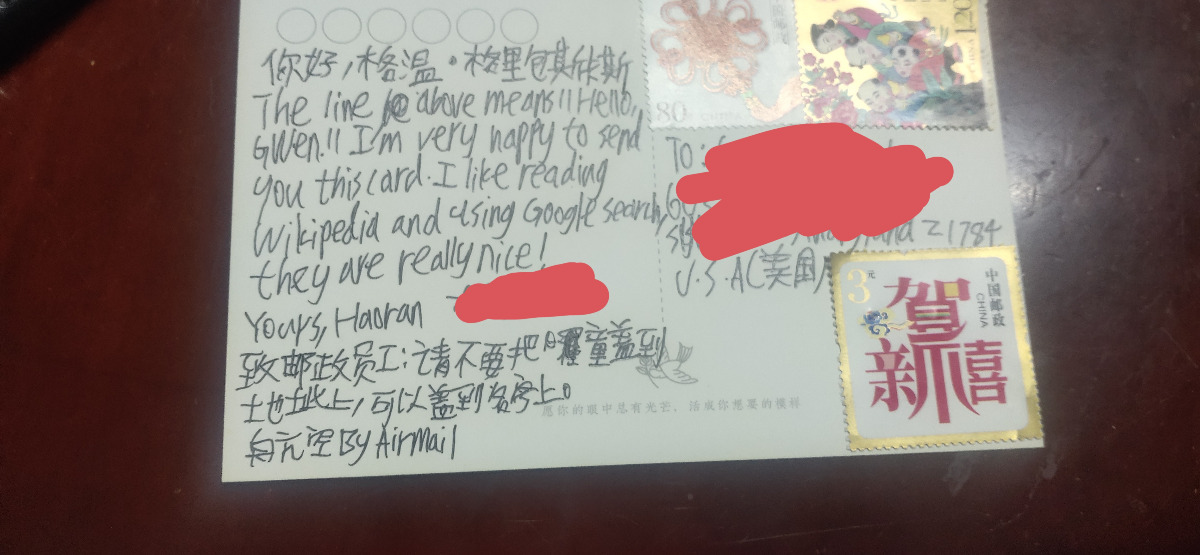 你好，格温·格里包斯依斯
The line above means "Hello,
Gwen." I'm very happy to send
you this card. I like reading
Wikipedia and using Google search,
they are really nice!
Yours, Haoran
致邮政员工：请不要把 章盖到
地址上，可以盖到名字上。
航空 By AirMail
80
120
CHINA
To:
Maryland 21784
U.S.A(美国)
3元
中国邮政
CHINA
贺
新禧
愿你的眼中总有光芒，活成你想要的模样